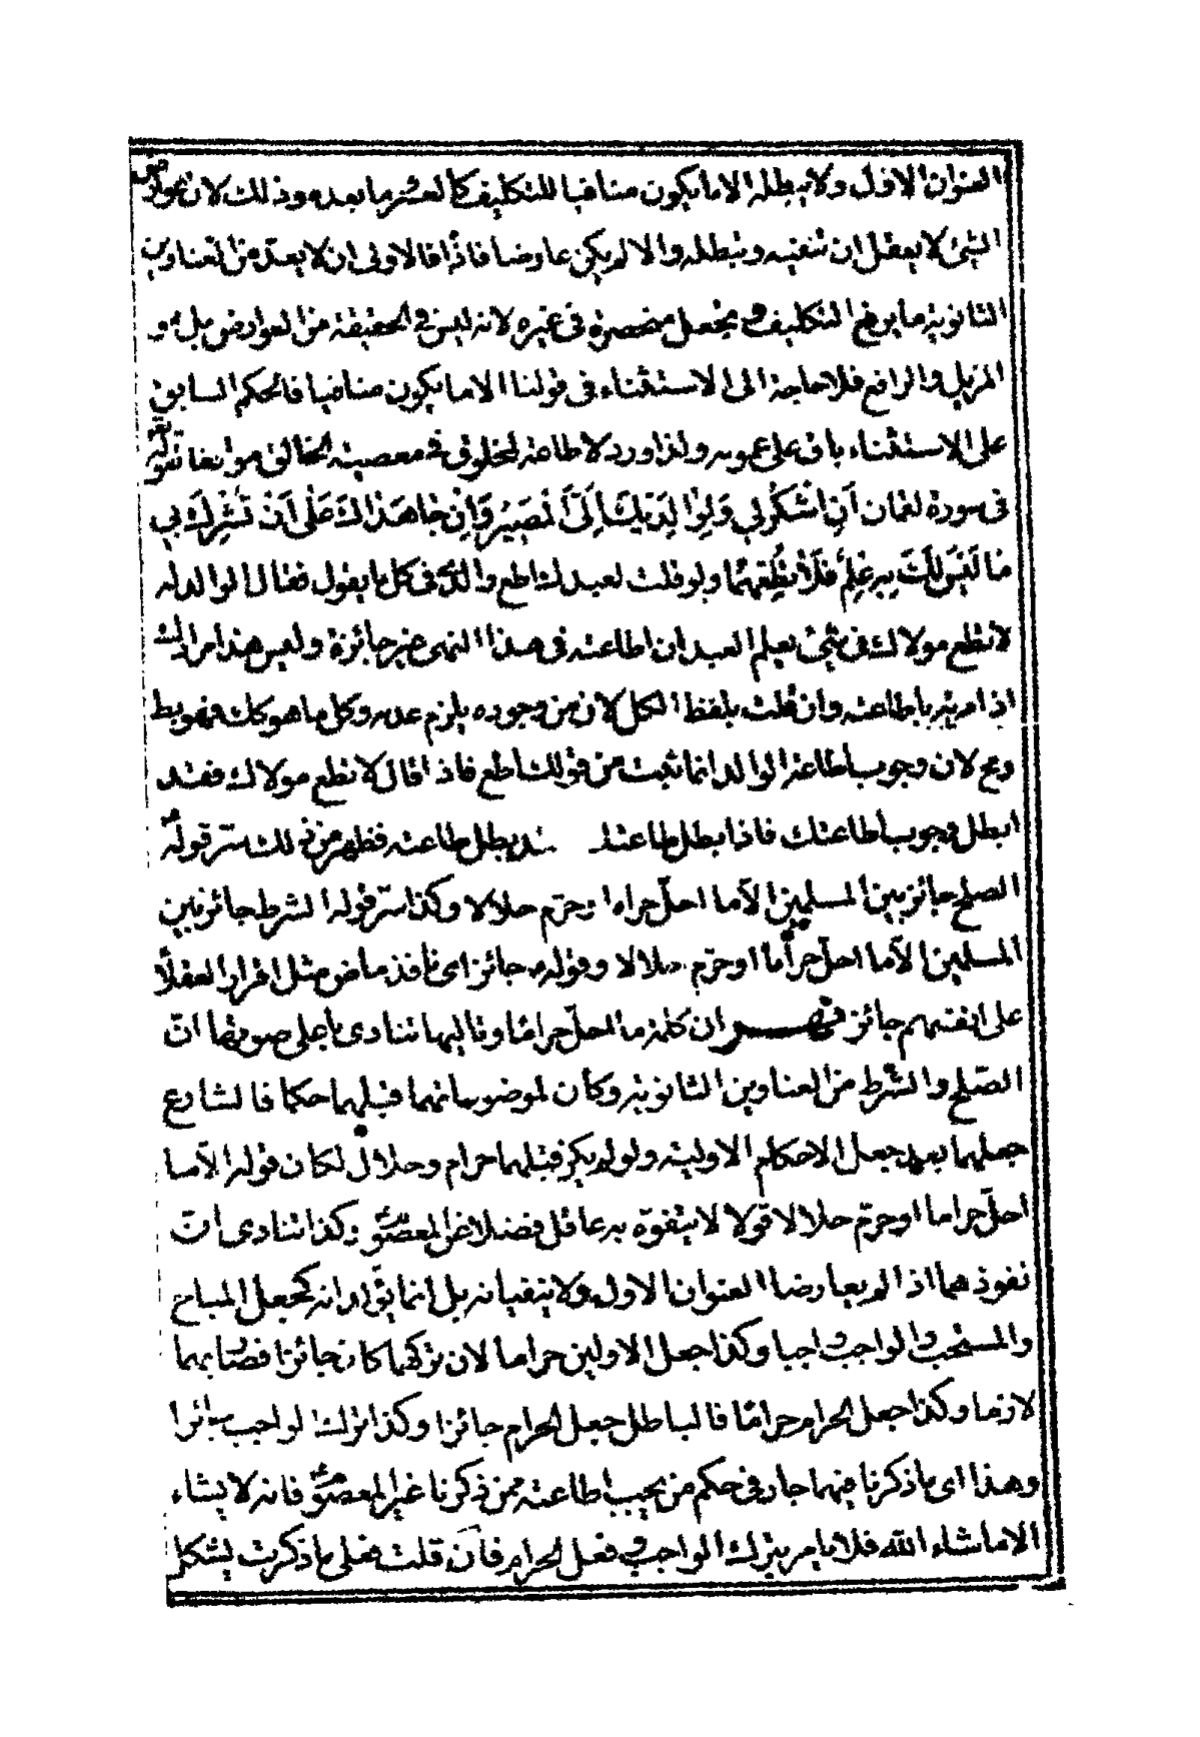 العنوان الاول ولا يبطله الا ما يكون منافيا للتكليف كالعشر ما بعده وذلك لان عوارض
الشئ لا يعقل ان تنفيه وتبطله والا لم يكن عارضا فاذا فالاولى ان لا يعد من العناوين
الثانوية ما يرفع التكليف ويجعل منحصرة فى غيره لانه ليس فى الحقيقة من العوارض بل هو
المزيل والرافع فلا حاجة الى الاستثناء فى قولنا الا ما يكون منافيا فالحكم السابق
على الاستثناء باق على عمومه ولذا ورد لا طاعة لمخلوق فى معصية الخالق موافقا لقوله تعالى
فى سورة لقمان اَنِ اشْكُرْلي وَلِوٰالِدَيْكَ اِلَىَّ الْمَصيرُ وَاِنْ جٰاهَدٰاكَ عَلٰى اَنْ تُشْرِكَ بي
مٰا لَيْسَ لَكَ بِهِ عِلْمٌ فَلاٰ تُطِعْهُمٰا ولو قلت لعبدك اطع والدك فى كل ما يقول فقال الوالد له
لا تطع مولاك فى شئ يعلم العبد ان اطاعته فى هذا النهى غير جائزة وليس هذا مرادك
اذ امرته باطاعته وان قلت بلفظ الكل لان من وجوده يلزم عدمه وكل ما هو كك فهو بط
وبع لان وجوب اطاعة الوالد انما ثبت من قولك اطع فاذا قال لا تطع مولاك فقد
ابطل وجوب اطاعتك فاذا بطل طاعتك بطل طاعته فظهر من ذلك ستر قوله ص
الصلح جائز بين المسلمين الا ما احل حراما او حرم حلالا وكذا ستر قوله الشرط جائز بين
المسلمين الا ما احل حراما او حرم حلالا وقوله ص جائز اى نافذ ماض مثل اقرار العقلاء
على انفسهم جائز ان كلمة ما احل حراما وتاليها تنادى باعلى صوتها ان
الصلح والشرط من العناوين الثانوية وكان لموضوعاتهما قبلهما حكما فالشارع
جعلهما بعد جعل الاحكام الاولية ولو لم يكن قبلهما حرام وحلال لكان قوله الا ما
احل حراما او حرم حلالا قولا لا يتفوه به عاقل فضلا عن المعصوم وكذا تنادى ان
نفوذهما اذا لم يعارضا العنوان الاول ولا ينفيانه بل انما يؤكدانه كجعل المباح
والمستحب والواجب واجبا وكذا جعل الاولين حراما لان تركهما كان جائزا فصار بهما
لازما وكذا جعل الحرام حراما فالباطل جعل الحرام جائزا وكذا ترك الواجب جائزا
وهذا اى ما ذكرنا فيهما جار فى حكم من يجب اطاعته ممن ذكرنا غير المعصوم فانه لا يشاء
الا ما شاء الله فلا يامر بترك الواجب وفعل الحرام فان قلت فعلى ما ذكرت يشكل